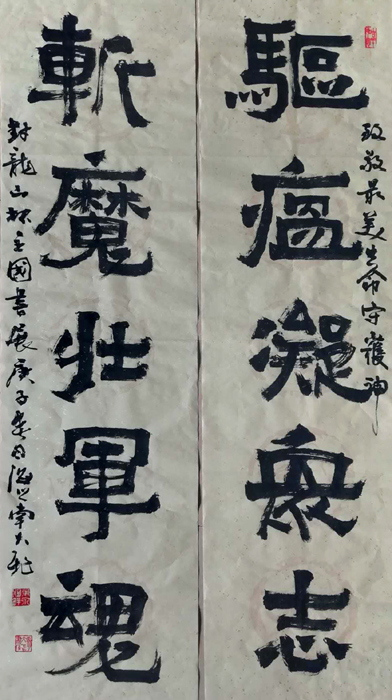 驅瘟凝衆志
致敬最美生命守護神
斬魔壯軍魂
封龍山 國書展庚子春月 南大